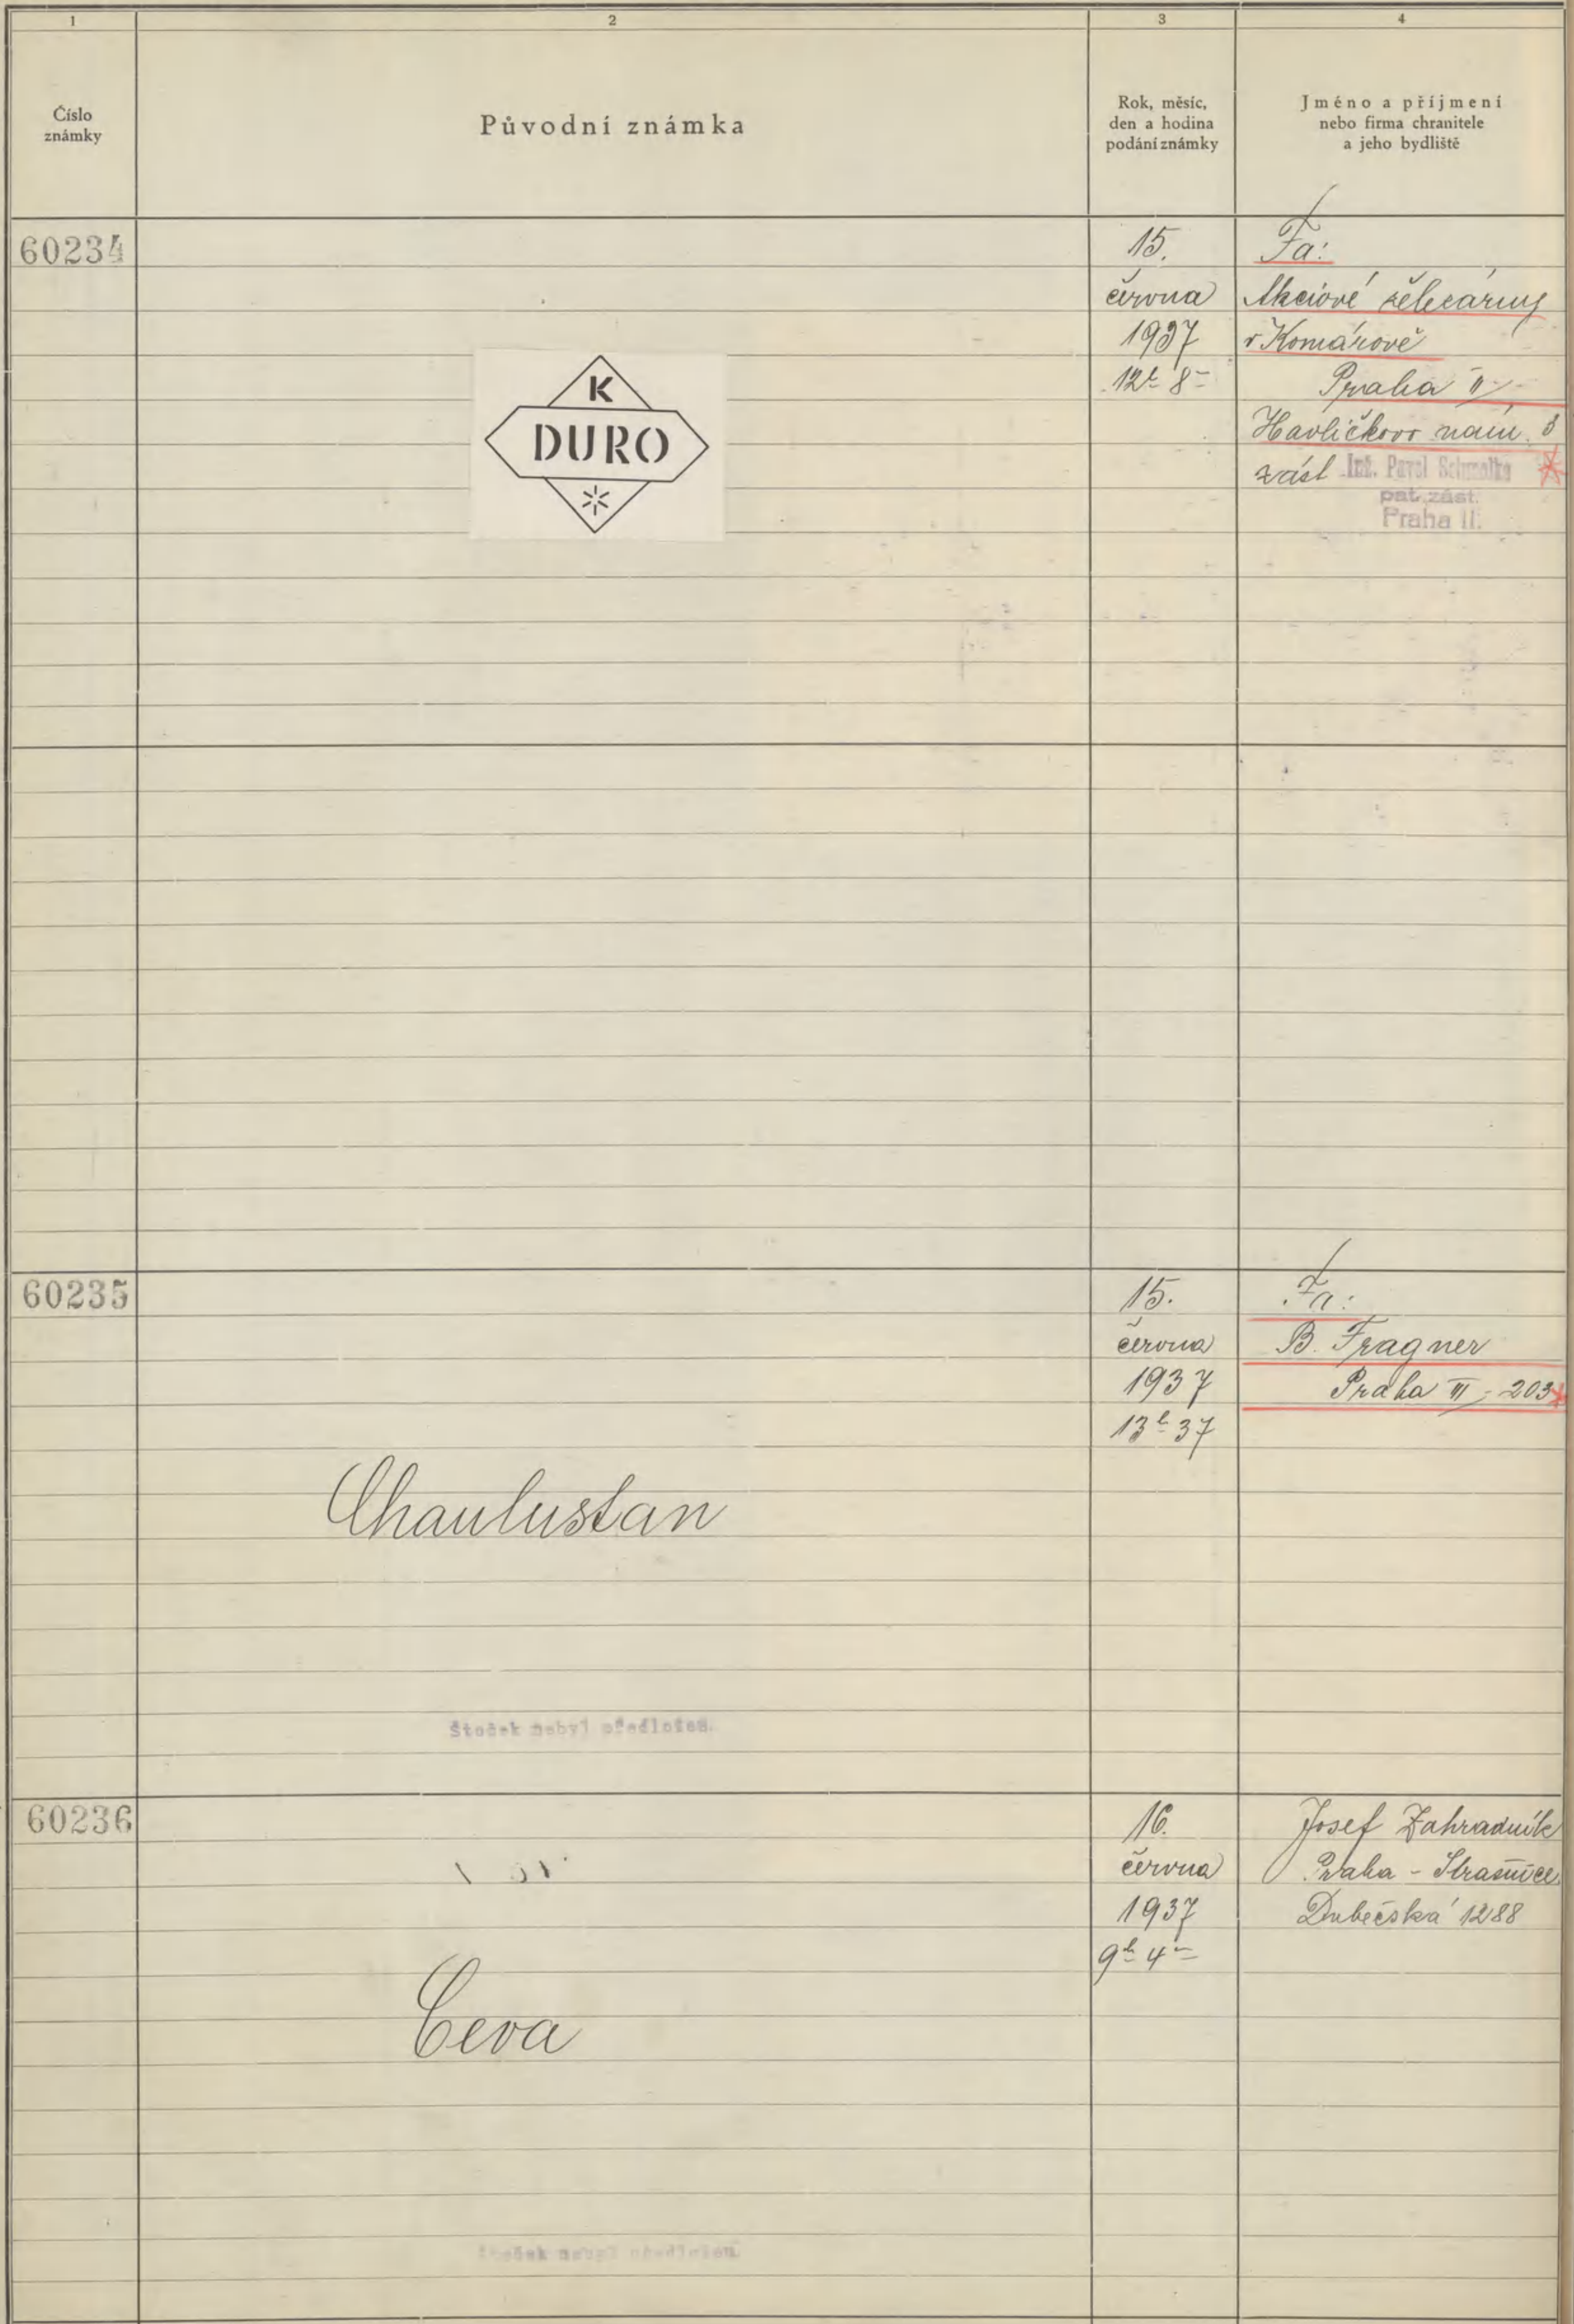 1
2
3
4
Číslo
známky
Původní známka
Rok, měsíc,
den a hodina
podání známky
Jméno a příjmení
nebo firma chranitele
a jeho bydliště
60234
K
DURO
15.
června
1937
12h 8m
Fa:
Akciové železárny
v Komárově
Praha II
Havlíčkovo nám. 3
zást Inž. Pavel Schmolka
pat. zást.
Praha II.
60235
Chaulustan
Štoček nebyl předložen.
15.
června
1937
13h 37
Fa:
B. Fragner
Praha III - 203
60236
Ceva
Štoček nebyl předložen.
16.
června
1937
9h 4m
Josef Zahradník
Praha - Strašnice
Dubečská 1288